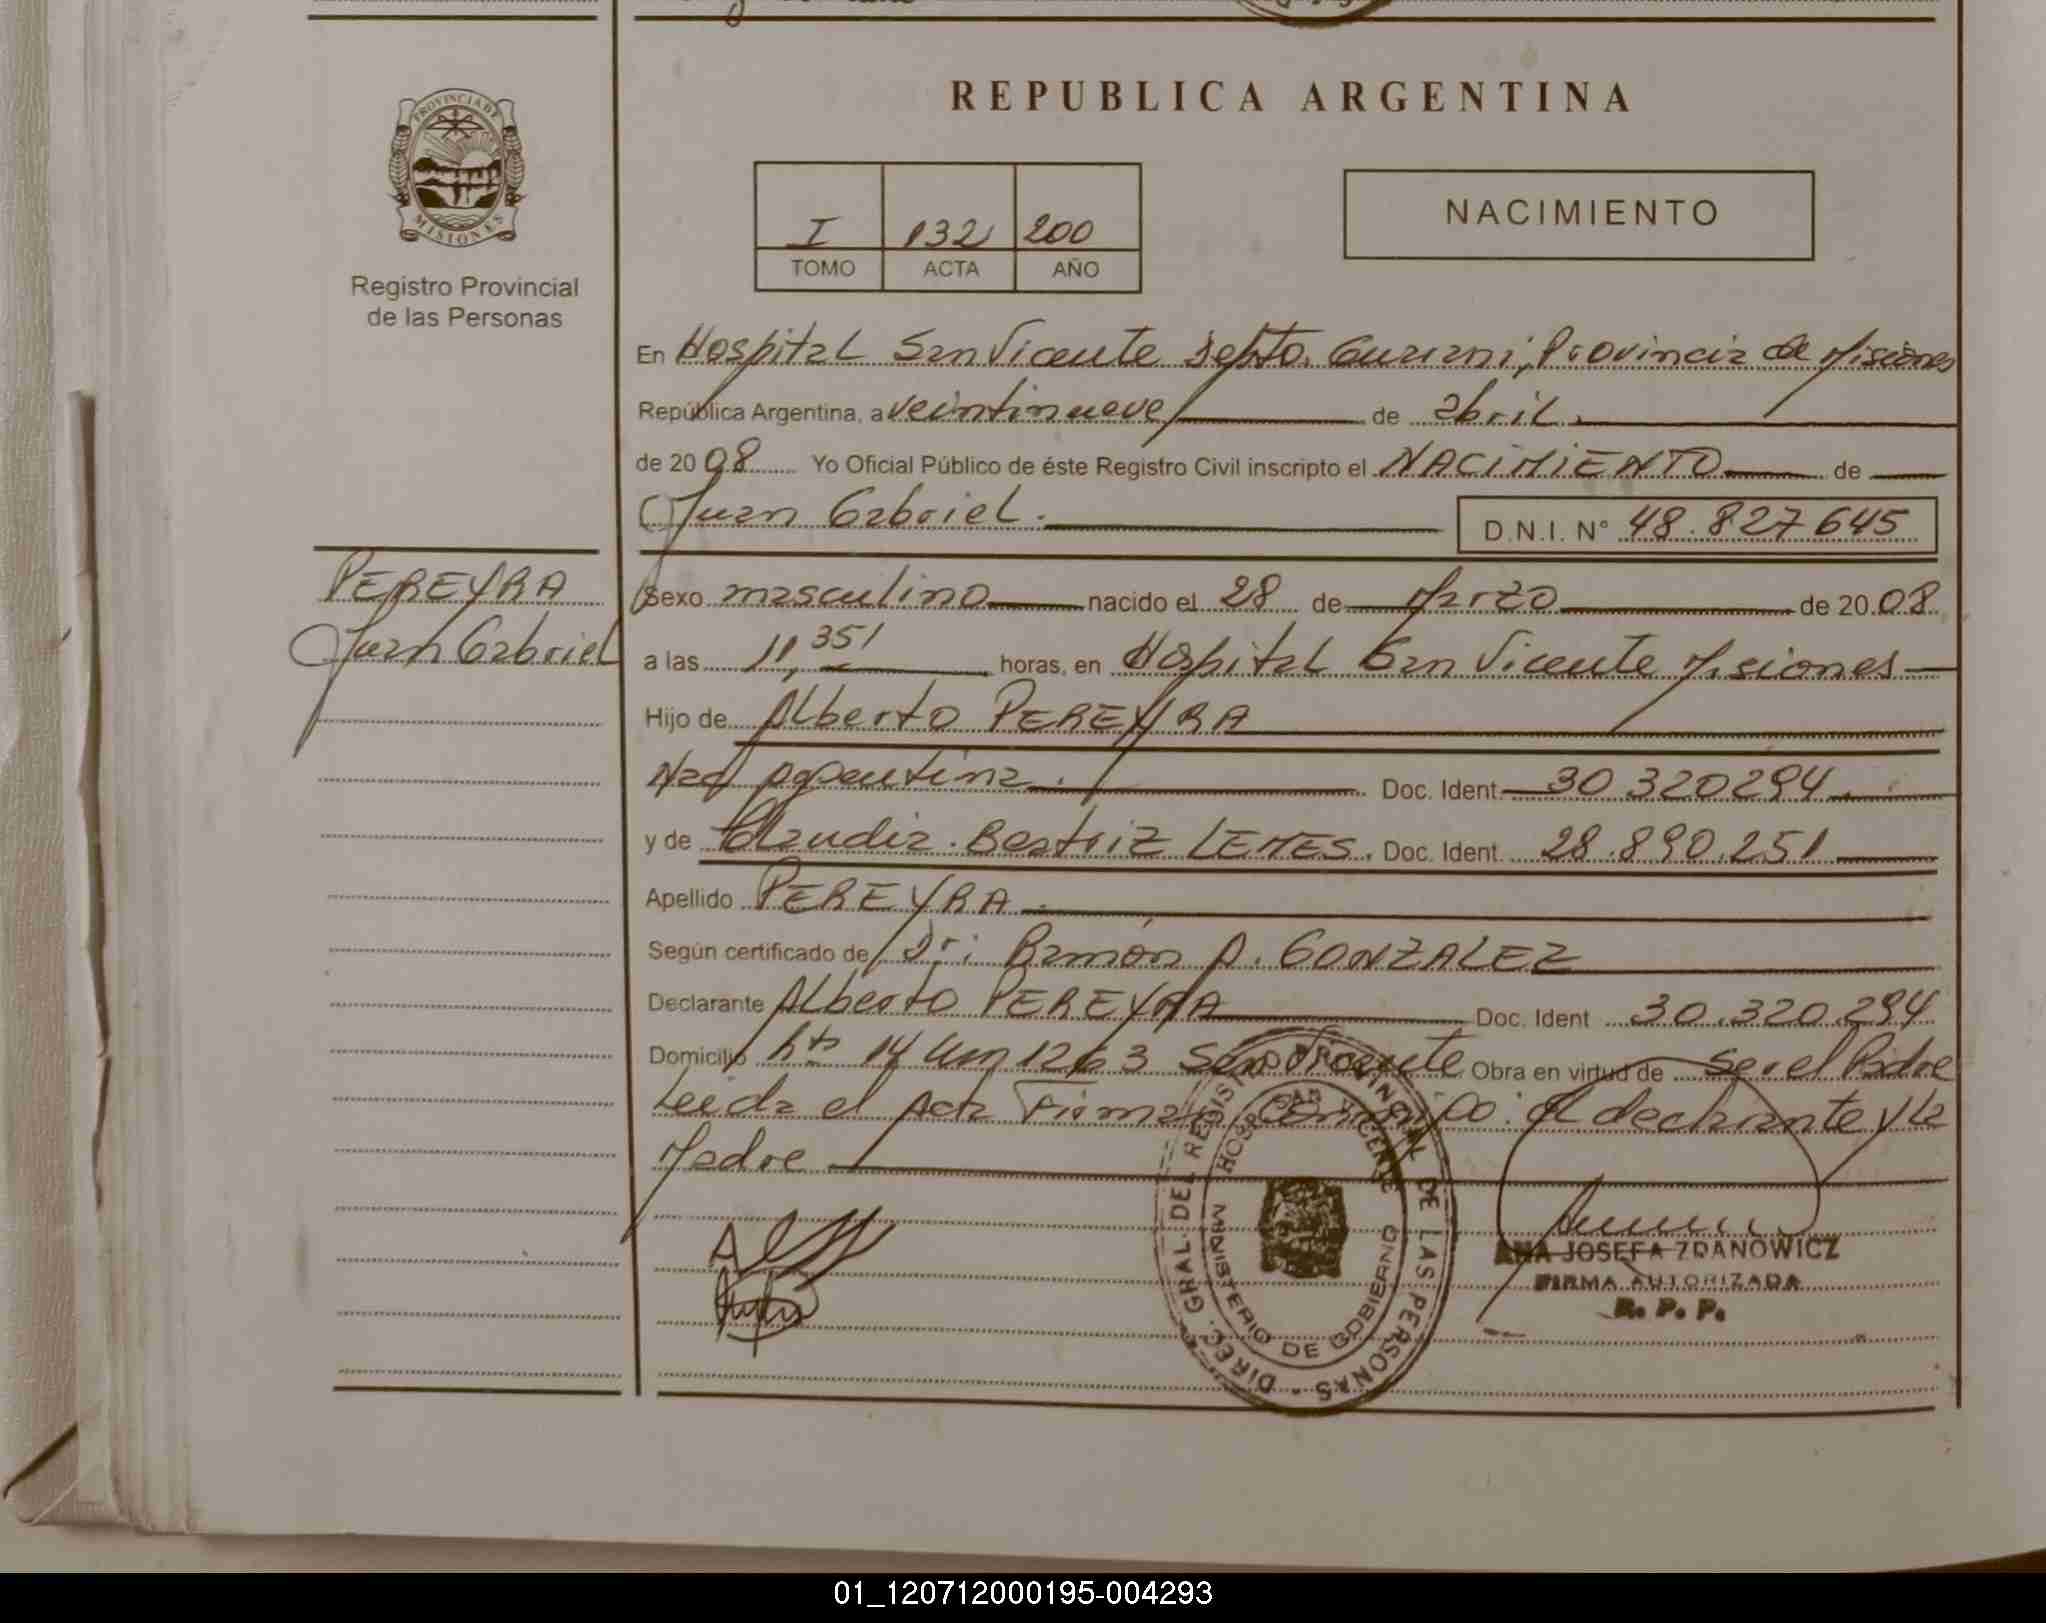 REPUBLICA ARGENTINA
PROVINCIA DE
MISIONES
Registro Provincial
de las Personas
I 132 200
TOMO ACTA AÑO
NACIMIENTO
En Hospital San Vicente Depto. Guarani, Provincia de Misiones
República Argentina, a veintinueve de abril.
de 2008 Yo Oficial Público de éste Registro Civil inscripto el NACIMIENTO de
Juan Gabriel. D.N.I. N° 48.827645
PEREYRA
Juan Gabriel
Sexo masculino nacido el 28 de Marzo de 20 08
a las 11,35 horas, en Hospital San Vicente Misiones
Hijo de Alberto PEREYRA
Nac Argentina. Doc. Ident. 30.320294
y de Claudia Beatriz LEMES. Doc. Ident. 28.890.251
Apellido PEREYRA
Según certificado de Dr: Ramón A. GONZALEZ
Declarante Alberto PEREYRA Doc. Ident 30.320.294
Domicilio Km 1263 San Vicente Obra en virtud de ser el Padre
Leida el Acta Firman Conmigo: el declarante y la
Madre
DIREC. GRAL. DEL REGISTRO PROVINCIAL DE LAS PERSONAS
HOSP. SAN VICENTE
MINISTERIO DE GOBIERNO
ANA JOSEFA ZDANOWICZ
FIRMA AUTORIZADA
R. P. P.
01_120712000195-004293